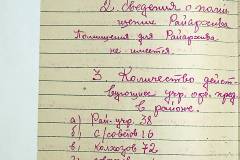 2. Сведения о поме
щение Райархива
Помещения для Райархива
не имеется.
3. Количество дейст
вующих учр. орг. пред
в районе.
а) Рай-учр. 38
б) с/советов 16
в) колхозов 72